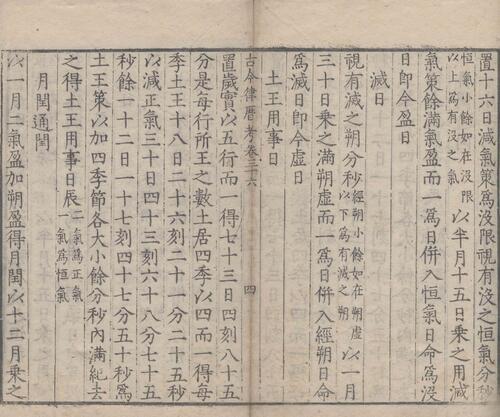 置十六日減氣策為沒限視有沒之恒氣分秒
恒氣小餘如在沒限
以上為有沒之氣
以半月十五日乘之用減
氣策餘滿氣盈而一為日併入恒氣日命為沒
日即今盈日
滅日
視有滅之朔分秒
經朔小餘如在朔虛
以下為有滅之朔
以一月
三十日乘之滿朔虛而一為日併入經朔日命
為滅日即今虛日
土王用事日
古今律曆考卷三十六
四
置歲實以五行而一得七十三日四刻八十五
分是每行所王之數土居四季以四而一得每
季土王十八日二十六刻二十一分二十五秒
以減正氣三十日四十三刻六十八分七十五
秒餘一十二日一十七刻四十七分五十秒為
土王策以加四季節各大小餘分秒內滿紀去
之得土王用事日辰
二氣為正氣
一氣為恒氣
月閏通閏
以一月二氣盈加朔盈得月閏以十二月乘之